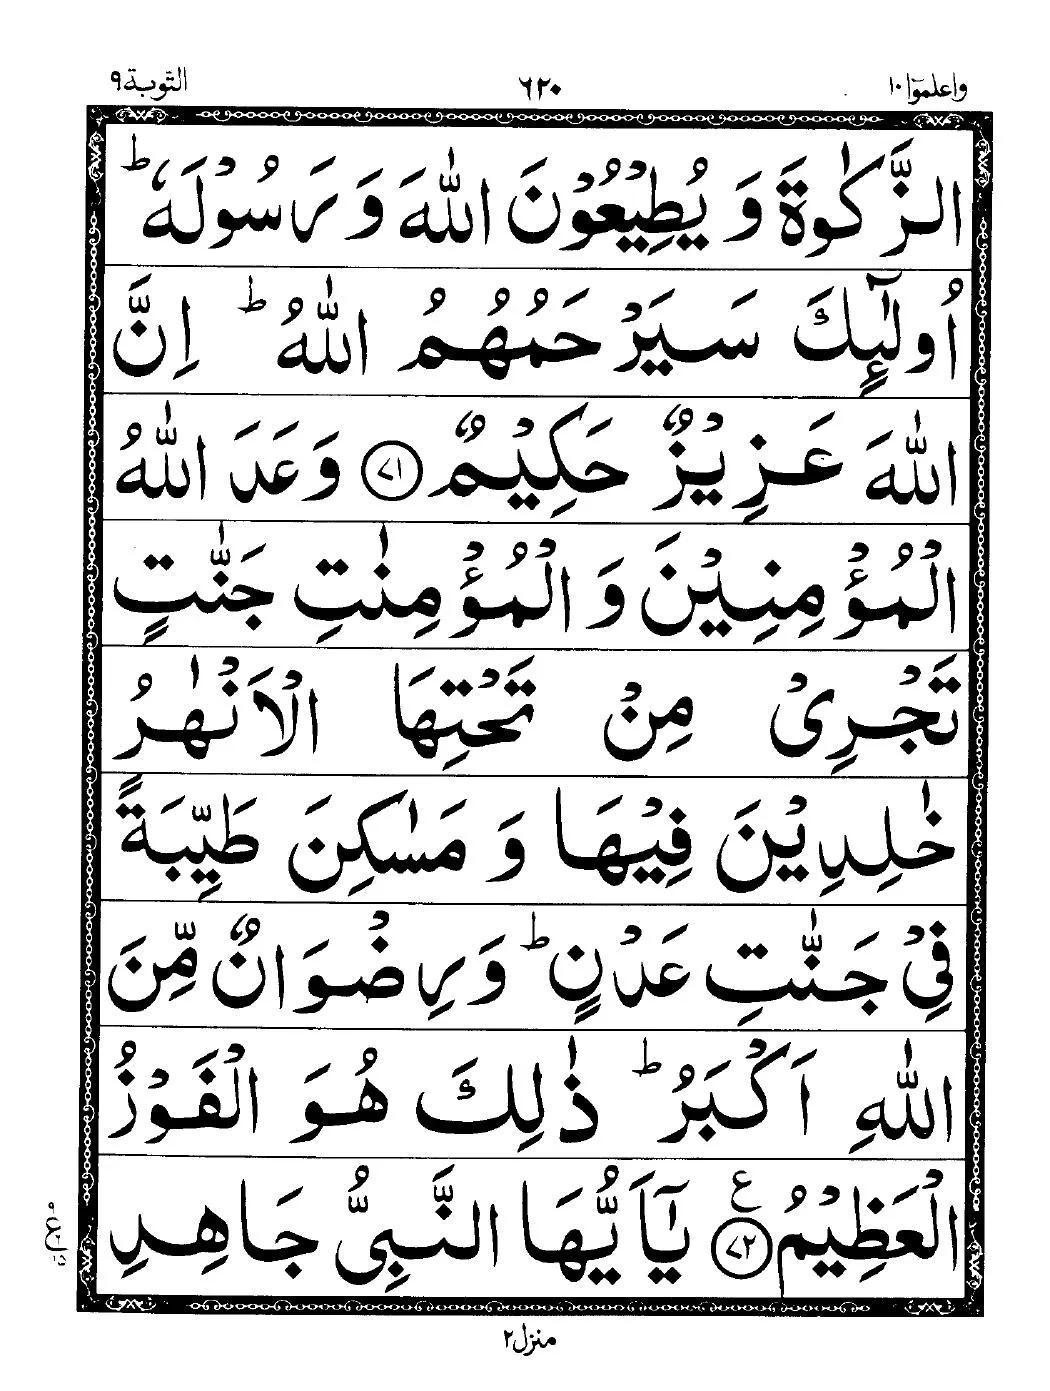 واعلموٓا ١٠ ٦٢٠ التّوبة ٩
الزَّكٰوةَ وَ يُطِيْعُوْنَ اللّٰهَ وَ رَسُوْلَهٗ ؕ
اُولٰٓئِكَ سَيَرْحَمُهُمُ اللّٰهُ ؕ اِنَّ
اللّٰهَ عَزِيْزٌ حَكِيْمٌ ﴿٧١﴾ وَعَدَ اللّٰهُ
الْمُؤْمِنِيْنَ وَ الْمُؤْمِنٰتِ جَنّٰتٍ
تَجْرِيْ مِنْ تَحْتِهَا الْاَنْهٰرُ
خٰلِدِيْنَ فِيْهَا وَ مَسٰكِنَ طَيِّبَةً
فِيْ جَنّٰتِ عَدْنٍ ؕ وَ رِضْوَانٌ مِّنَ
اللّٰهِ اَكْبَرُ ؕ ذٰلِكَ هُوَ الْفَوْزُ
الْعَظِيْمُ ﴿٧٢﴾ ع يٰٓاَيُّهَا النَّبِيُّ جَاهِدِ
منزل ٢